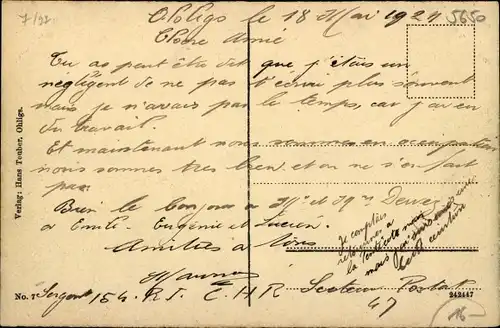 7/97
Ohligs le 18 Mai 1921
5650
Chère Amie
Tu as peut être dit que j'étais un
négligent de ne pas t'écrire plus souvent
mais je n'avais pas le temps, car j'ai eu
du travail.
Et maintenant nous sommes en occupation
nous sommes très bien et on ne s'en fait
pas.
Bien le bonjour à Mr et Mme
à Emile Eugénie et Lucien.
Amitiés à tous
Je comptais
retourner à
mais
Sergent 154 R.I. C.H.R Secteur Postal
47
Verlag: Hans Teuber, Ohligs.
No. 7
242447
16-